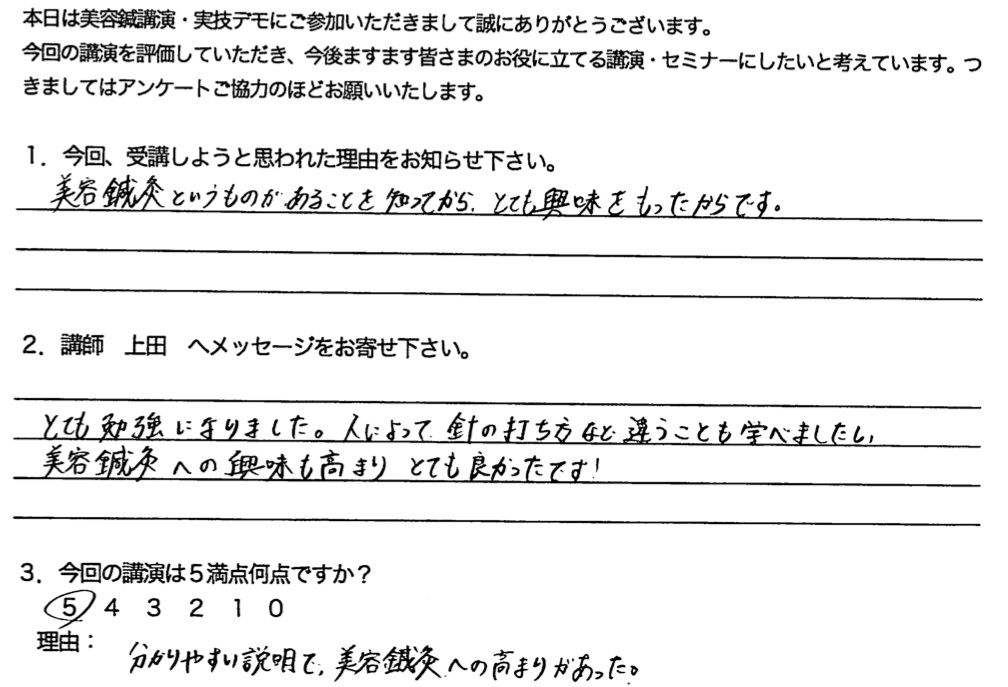 本日は美容鍼講演・実技デモにご参加いただきまして誠にありがとうございます。
今回の講演を評価していただき、今後ますます皆さまのお役に立てる講演・セミナーにしたいと考えています。つ
きましてはアンケートご協力のほどお願いいたします。
1．今回、受講しようと思われた理由をお知らせ下さい。
美容鍼灸というものがあることを知ってから、とても興味をもったからです。
2．講師　上田　へメッセージをお寄せ下さい。
とても勉強になりました。人によって針の打ち方など違うことも学べましたし、
美容鍼灸への興味も高まりとても良かったです！
3．今回の講演は5満点何点ですか？
5 4 3 2 1 0
理由：
分かりやすい説明で、美容鍼灸への高まりがあった。